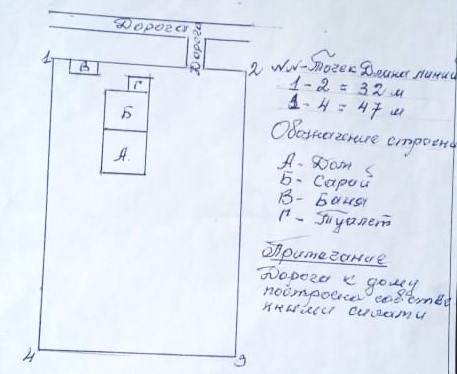 Дорога
Дорога
1
2
В
Г
Б
А.
4
3
NN-Точек Длина линии
1-2 = 32 м
1-4 = 47 м
Обозначение строени
А- Дом
Б- Сарай
В- Баня
Г- Туалет
Примечание
Дорога к дому
построена собстве
нными силами